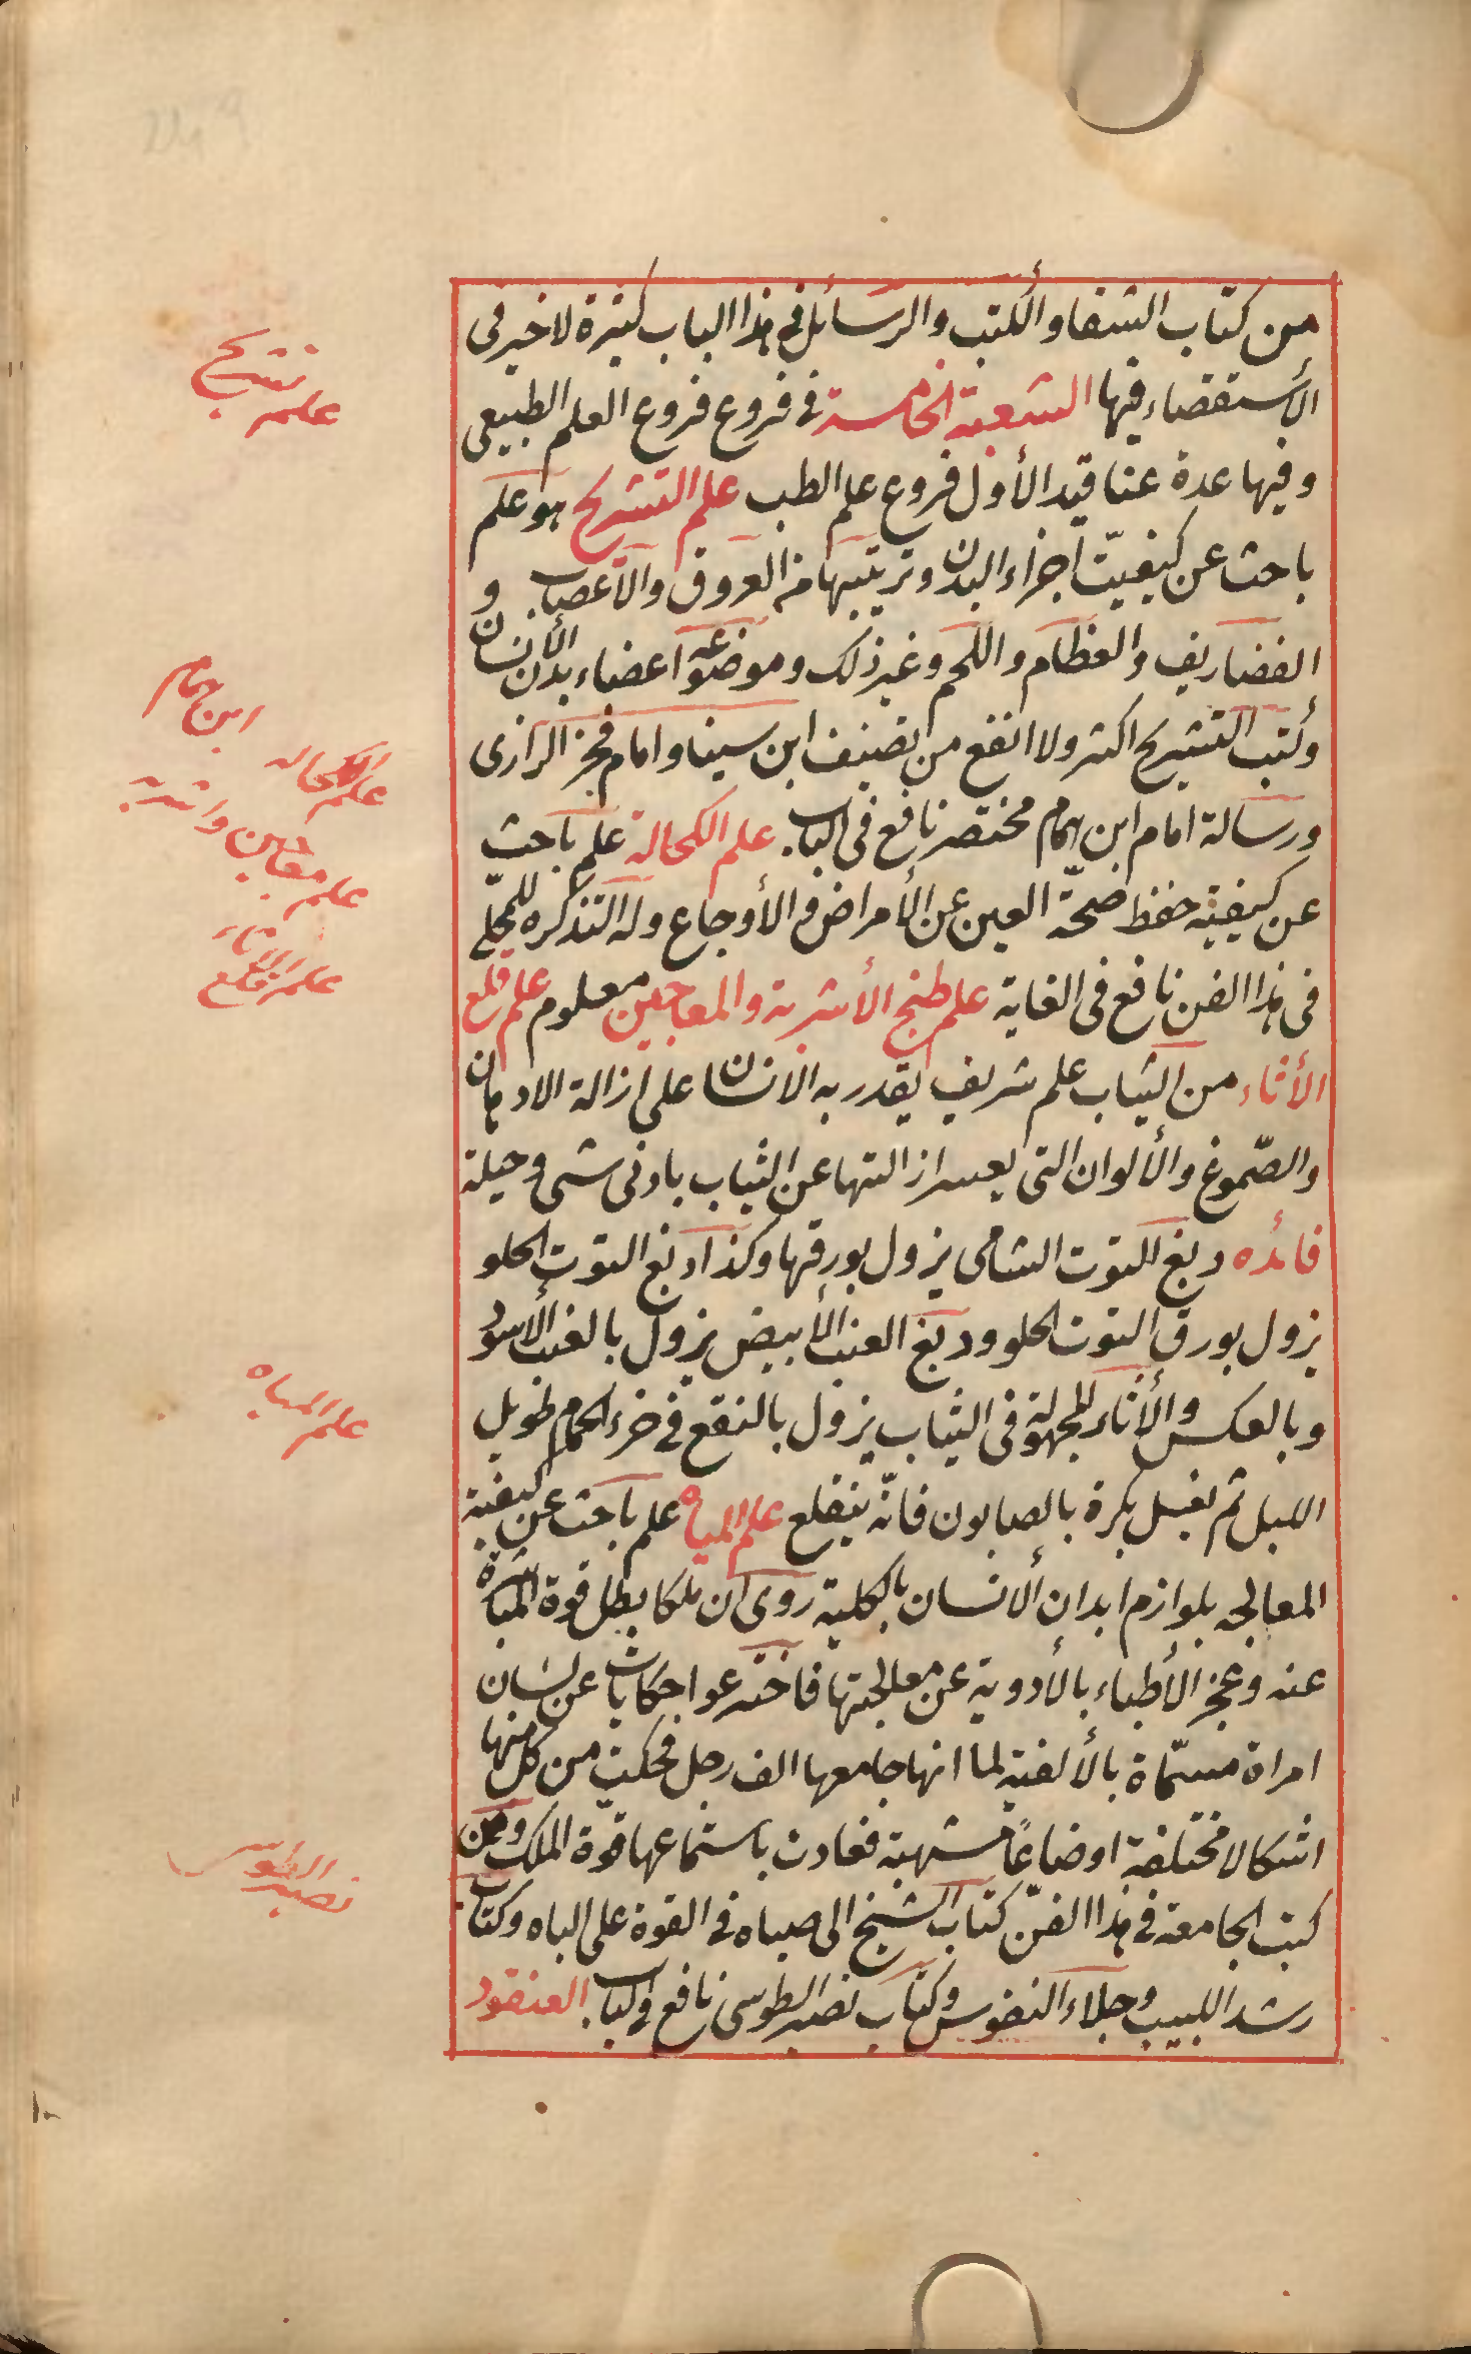 من كتاب الشفا والكتب والرسائل فى هذا الباب كثيرة لا خير فى
الأستقضاء فيها الشعبة الخامسة فى فروع فروع العلم الطبيعى
وفيها عدة عناقيد الأول فروع علم الطب علم التشريح هو علم
باحث عن كيفيّت اجزاء البدن وترتيبها من العروق والأعصاب و
الغضاريف والعظام واللحم وغير ذلك وموضوعه اعضاء بدن الأنسان
وكتب التشريح اكثر ولا انفع من تصنيف ابن سينا وامام فخر الرازى
ورسالة امام ابن همام مختصر نافع فى الباب علم الكحالة علم باحث
عن كيفية حفظ صحّة العين عن الأمراض والأوجاع وله التذكره للمجلّى
فى هذا الفن نافع فى الغاية علم طبخ الأشربة والمعاجين معلوم علم قلع
الأثاء من الثياب علم شريف يقدر به الانسان على ازالة الادهان
والصّموغ والألوان التى يعسر ازالتها عن الثياب بادنى شى وحيلة
فائده دبغ التوت الشامى يزول بورقها وكذا دبغ التوت الحلو
يزول بورق التوت الحلو ودبغ العنب الأبيض يزول بالعنب الأسود
وبالعكس والأثاء المجهولة فى الثياب يزول بالنقع فى خرء الحمام طويل
الليل ثم يغسل بكرة بالصابون فانّه ينقلع علم المياه علم باحث عن كيفية
المعالجه بلوازم ابدان الأنسان بالكلية روى ان ملكا بطل قوة المباشرة
عنه وعجز الأطباء بالأدوية عن معالجتها فاخترعوا حكايات عن لسان
امراة مسمّاة بالألفية لما انها جامعها الف رجل فحكيت من كل منها
اشكالا مختلفة اوضاعًا مشهية فعادت باستماعها قوة الملك ومن
كتب الجامعة فى هذا الفنّ كتاب الشيخ الى صباه فى القوة على الباه وكتاب
رشد اللبيب وجلاء النفوس وكتاب نصير الطوسى نافع فى الباب العنقود
علم تشريح
ابن همام
علم الكحاله
علم معاجين واشربه
علم قلع الاثاء
علم المياه
نصير الطوسى